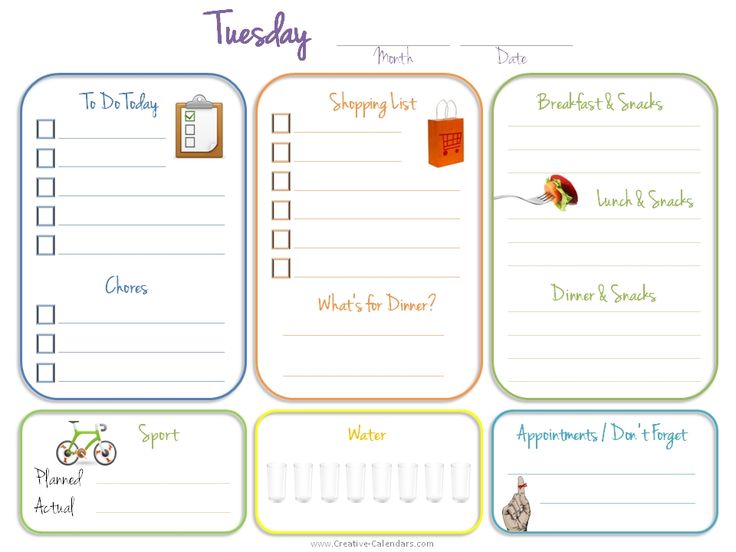 Tuesday
Month Date
To Do Today
Chores
Shopping List
What's for Dinner?
Breakfast & Snacks
Lunch & Snacks
Dinner & Snacks
Sport
Planned
Actual
Water
Appointments / Don't Forget
www.Creative-Calendars.com